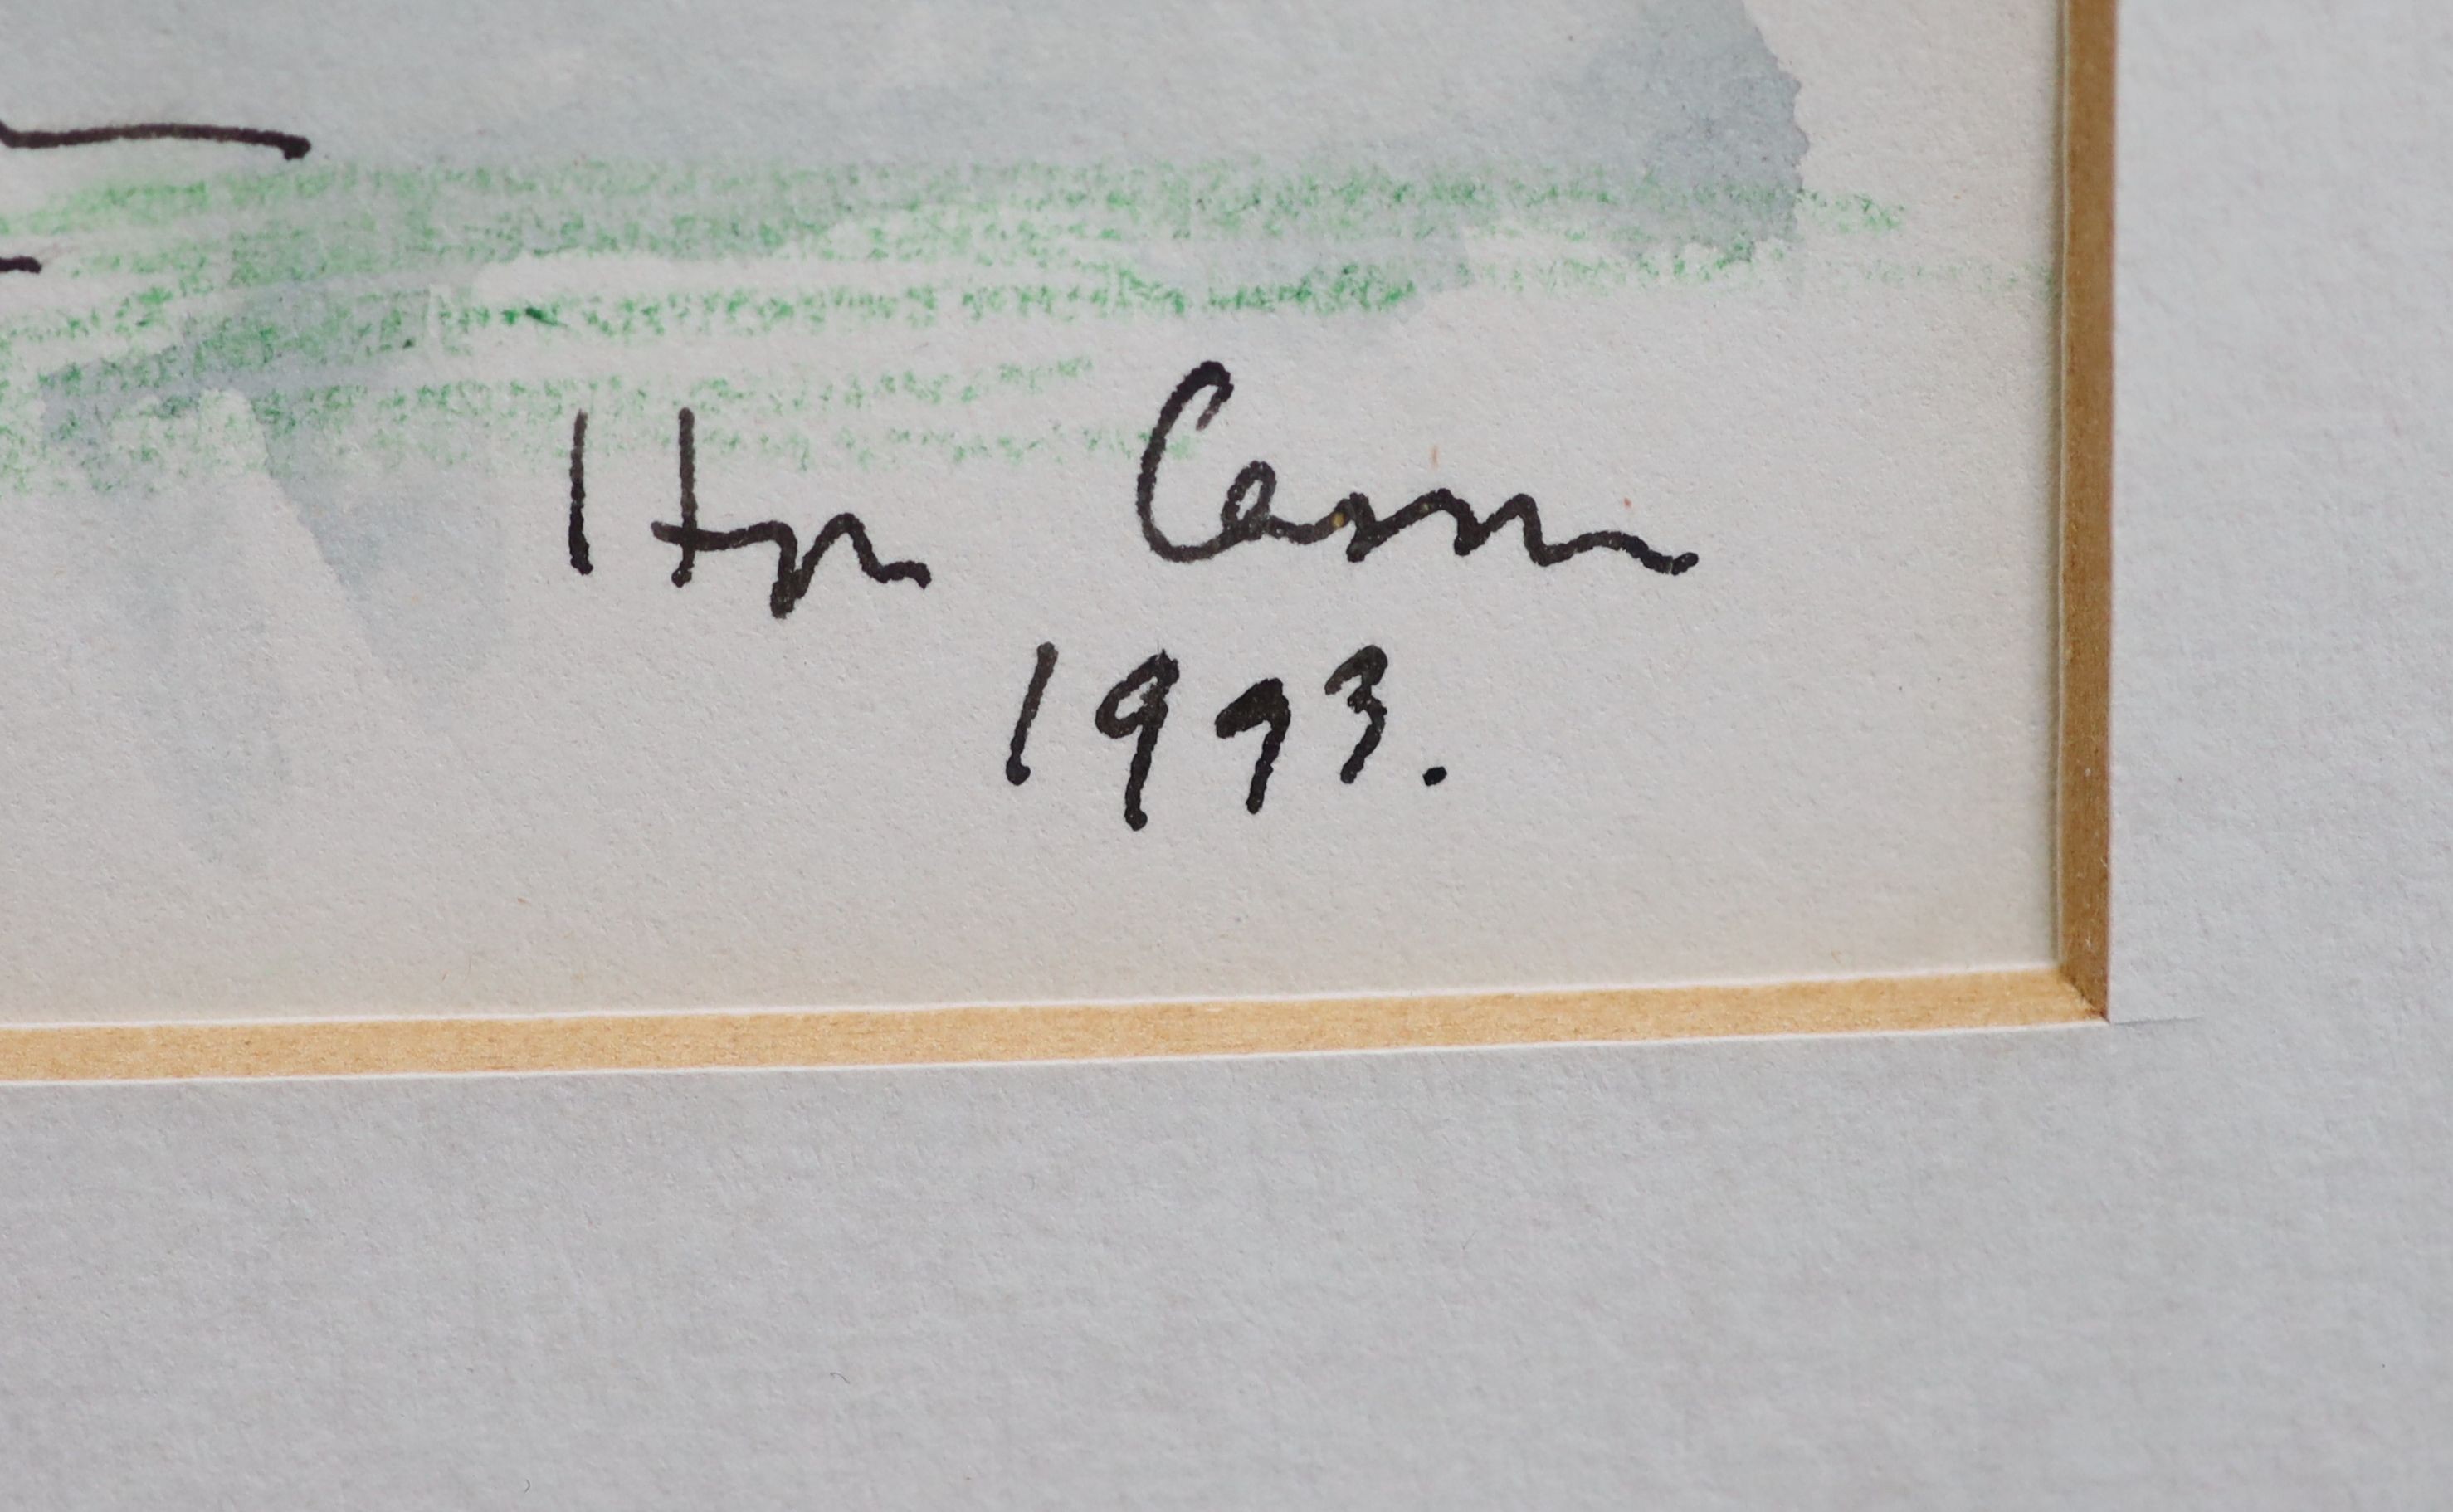 Hugh Casson
1993.